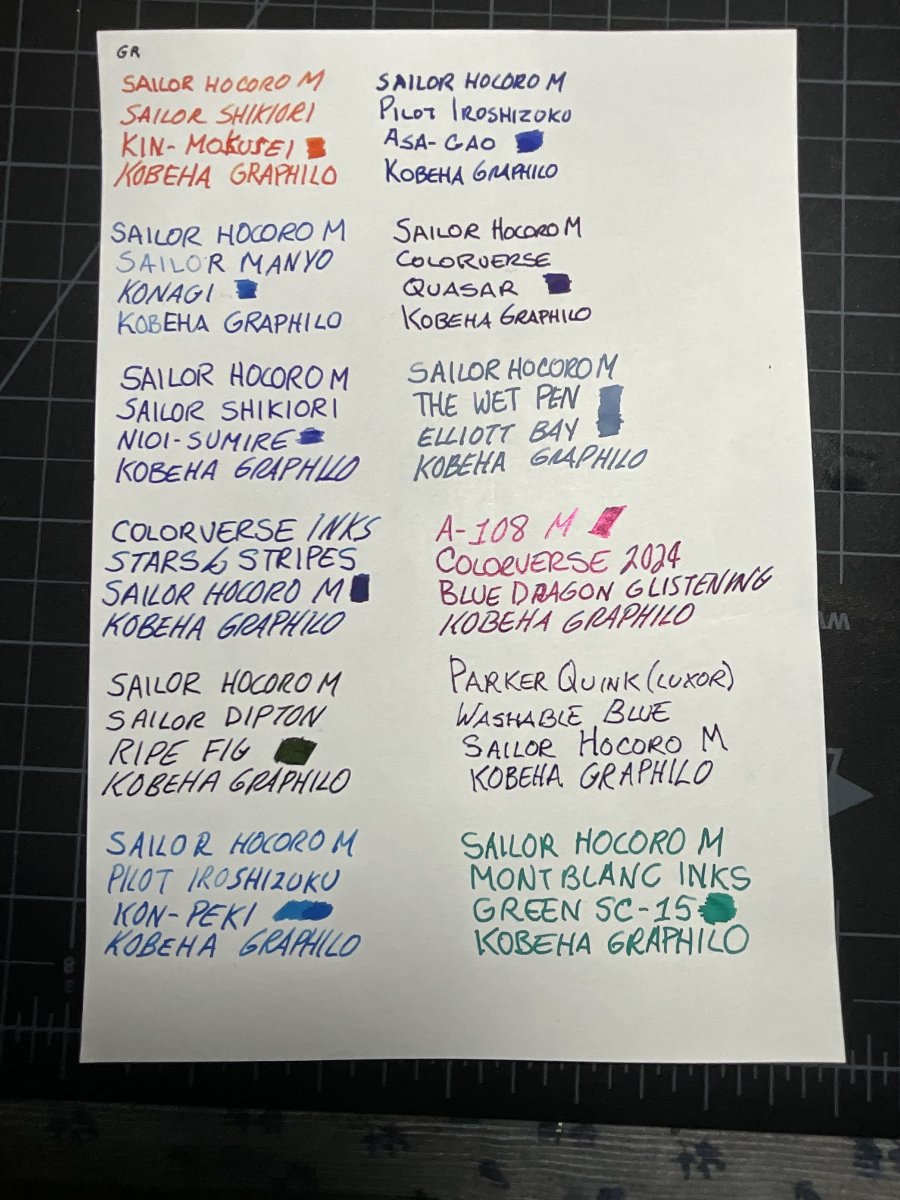 GR
SAILOR HOCORO M
SAILOR SHIKIORI
KIN-MOKUSEI
KOBEHA GRAPHILO
SAILOR HOCORO M
PILOT IROSHIZOKU
ASA-GAO
KOBEHA GRAPHILO
SAILOR HOCORO M
SAILOR MANYO
KONAGI
KOBEHA GRAPHILO
SAILOR HOCORO M
COLORVERSE
QUASAR
KOBEHA GRAPHILO
SAILOR HOCORO M
SAILOR SHIKIORI
NIOI-SUMIRE
KOBEHA GRAPHILO
SAILOR HOCORO M
THE WET PEN
ELLIOTT BAY
KOBEHA GRAPHILO
COLORVERSE INKS
STARS & STRIPES
SAILOR HOCORO M
KOBEHA GRAPHILO
A-108 M
COLORVERSE 2024
BLUE DRAGON GLISTENING
KOBEHA GRAPHILO
SAILOR HOCORO M
SAILOR DIPTON
RIPE FIG
KOBEHA GRAPHILO
PARKER QUINK (LUXOR)
WASHABLE BLUE
SAILOR HOCORO M
KOBEHA GRAPHILO
SAILOR HOCORO M
PILOT IROSHIZUKU
KON-PEKI
KOBEHA GRAPHILO
SAILOR HOCORO M
MONTBLANC INKS
GREEN SC-15
KOBEHA GRAPHILO